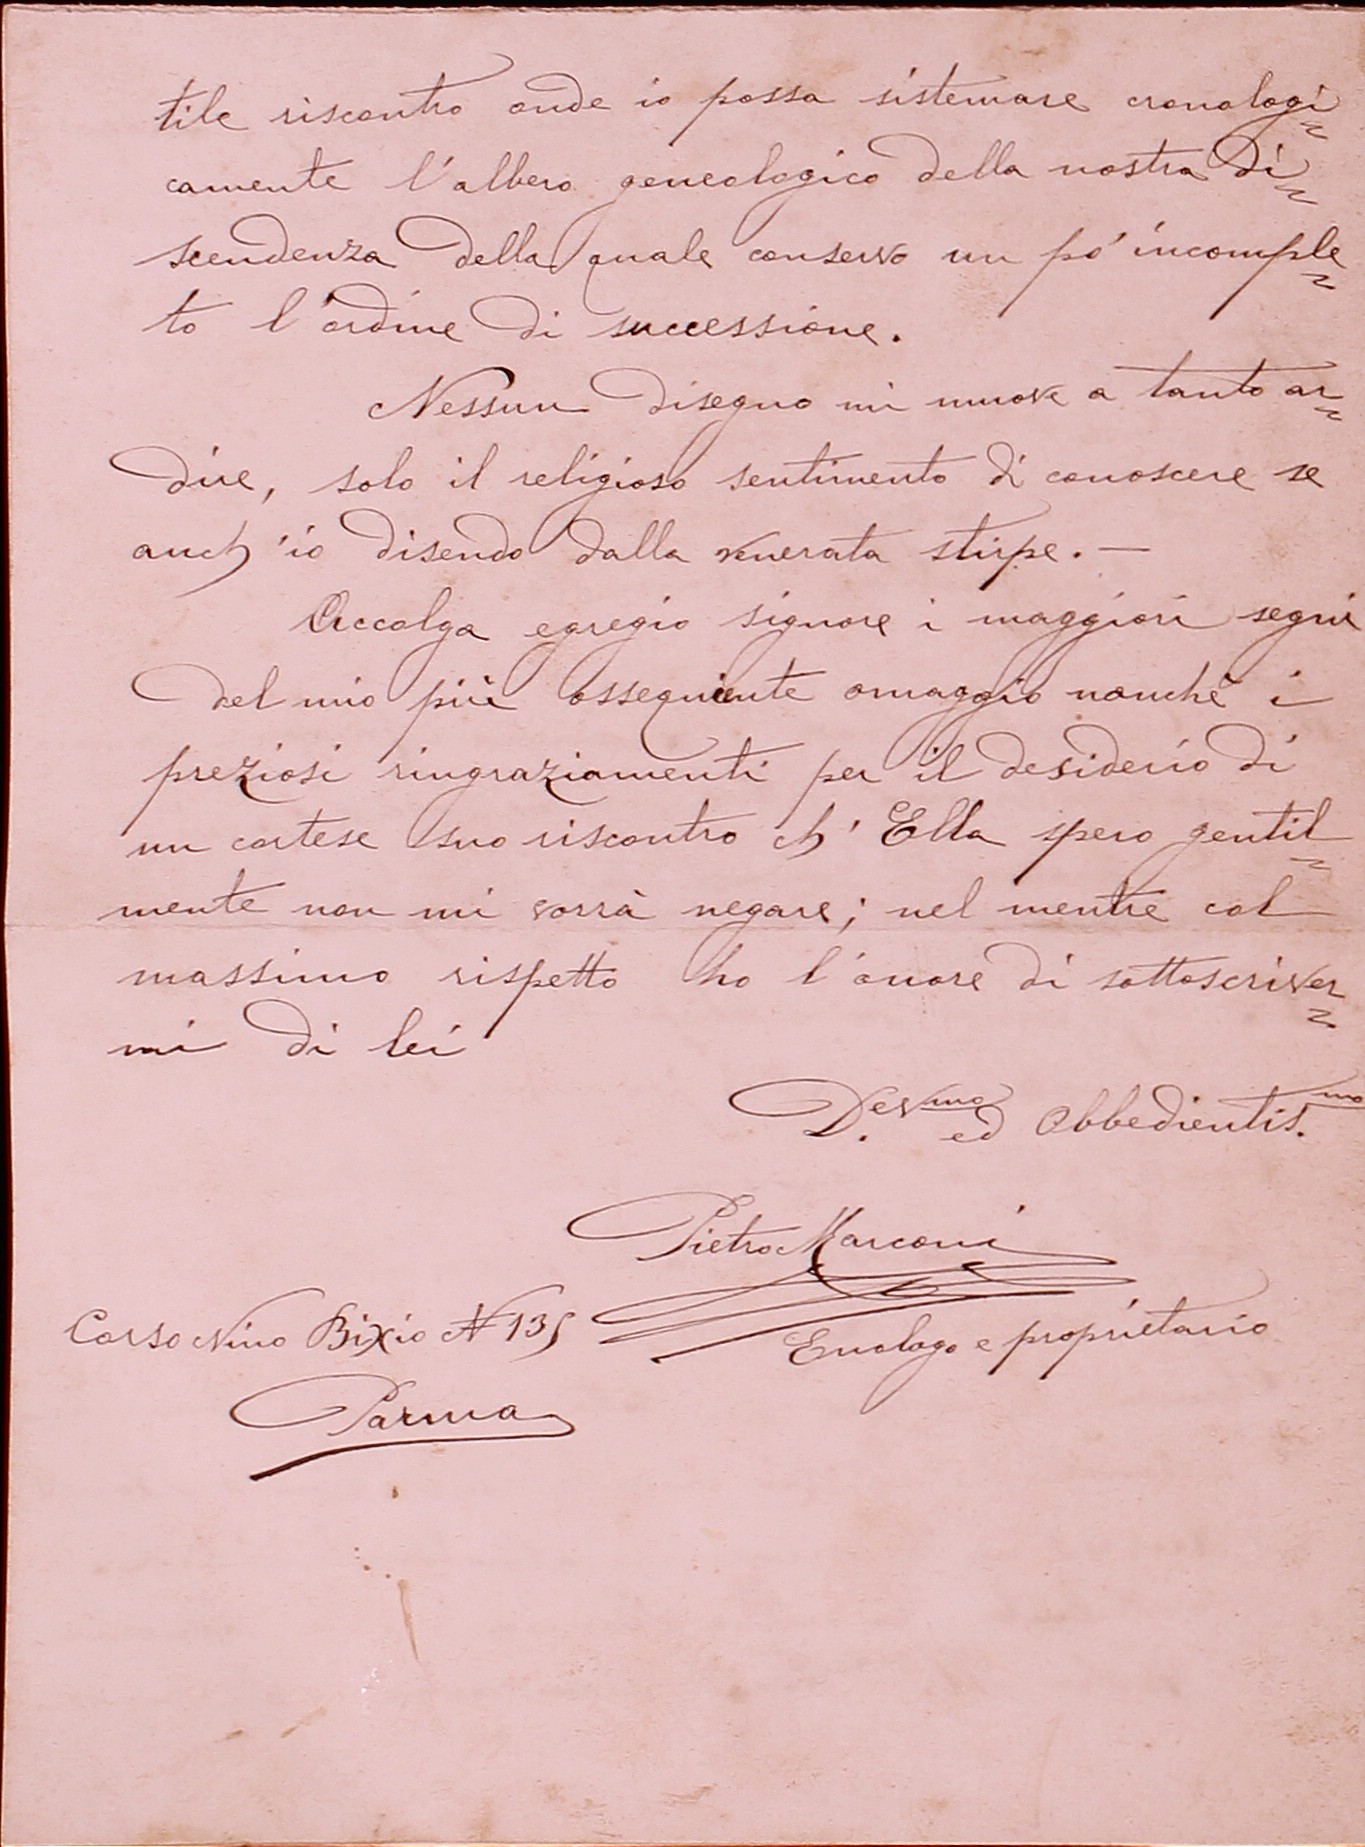 tile riscontro onde io possa sistemare cronologi=
camente l'albero geneologico della nostra di=
scendenza della quale conservo un pó incomple=
to l'ordine di successione.
Nessun disegno mi muove a tanto ar=
dire, solo il religioso sentimento di conoscere se
anch'io disendo dalla venerata stirpe. —
Accolga egregio signore i maggiori segni
del mio più ossequiente omaggio nonchè i
preziosi ringraziamenti per il desiderio di
un cortese suo riscontro ch'Ella spero gentil=
mente non mi vorrà negare; nel mentre col
massimo rispetto ho l'onore di sottoscriver=
mi di lei
Dev.mo ed Obbedientis.mo
Pietro Marconi
Enologo e proprietario
Corso Nino Bixio N 135
Parma